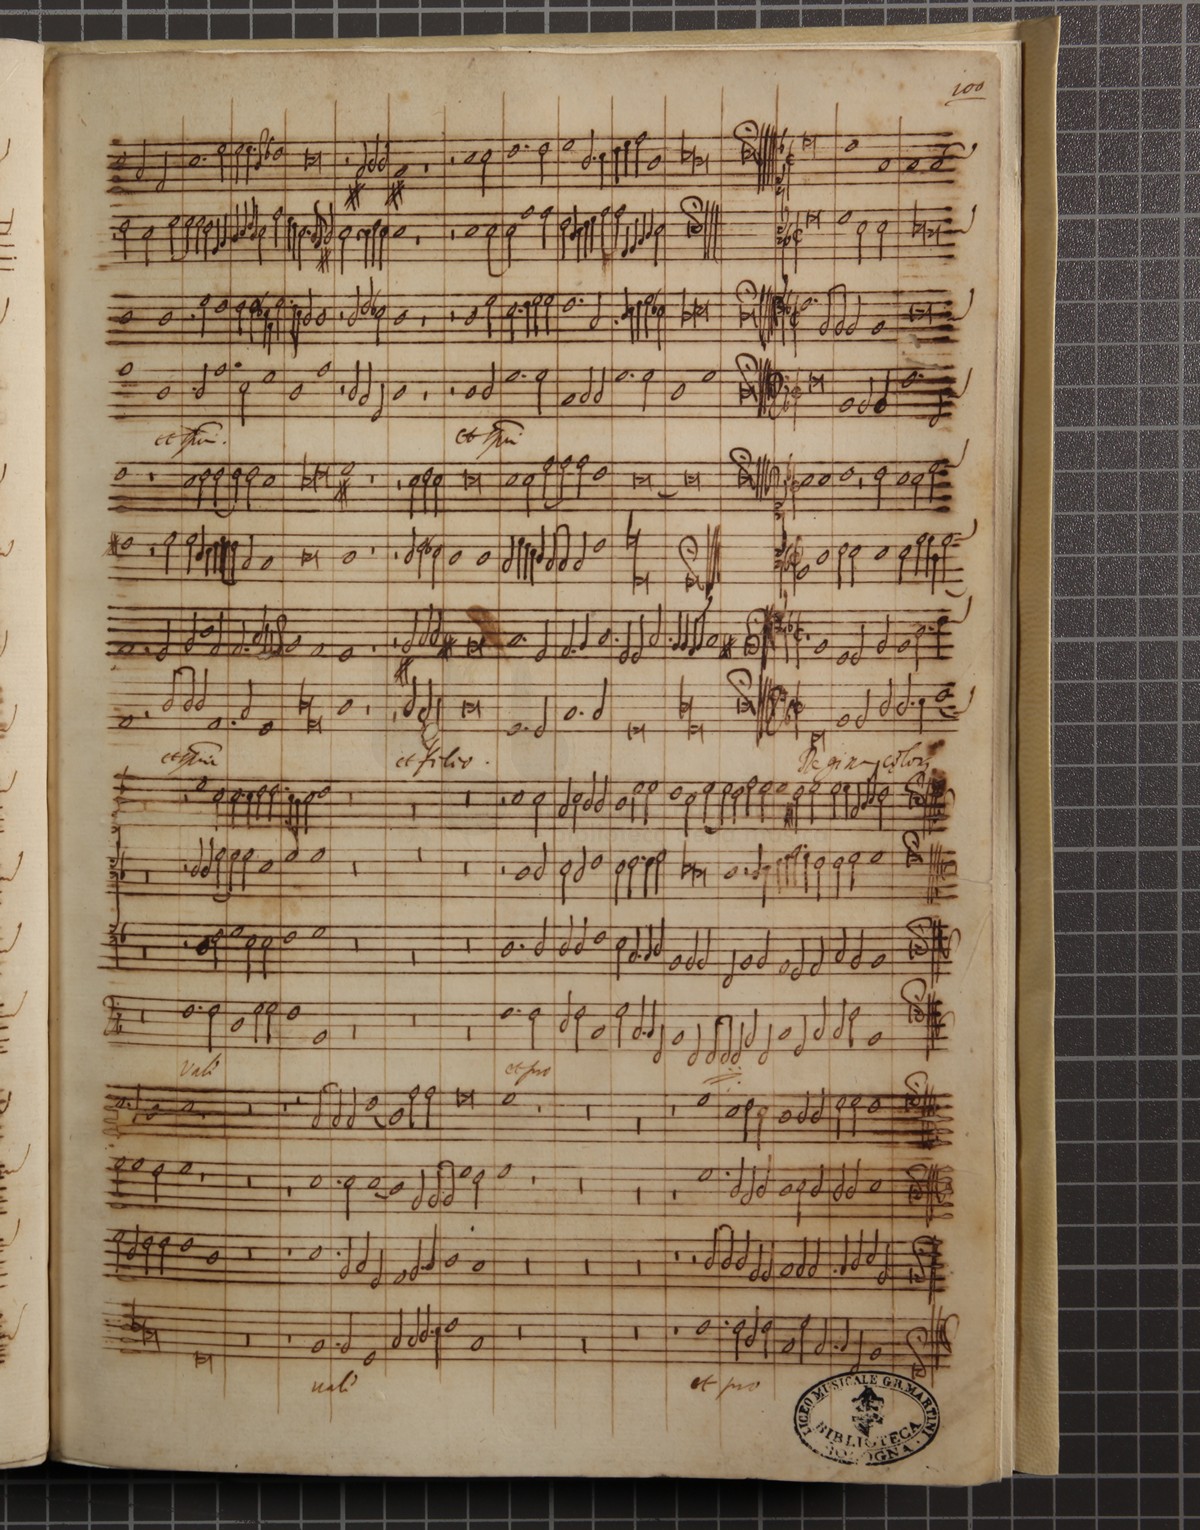 100
et spũ. et spũ
et spũ et filio.
Regina celorum
vali et pro
vali et pro
LICEO MUSICALE G.B. MARTINI
BIBLIOTECA
BOLOGNA